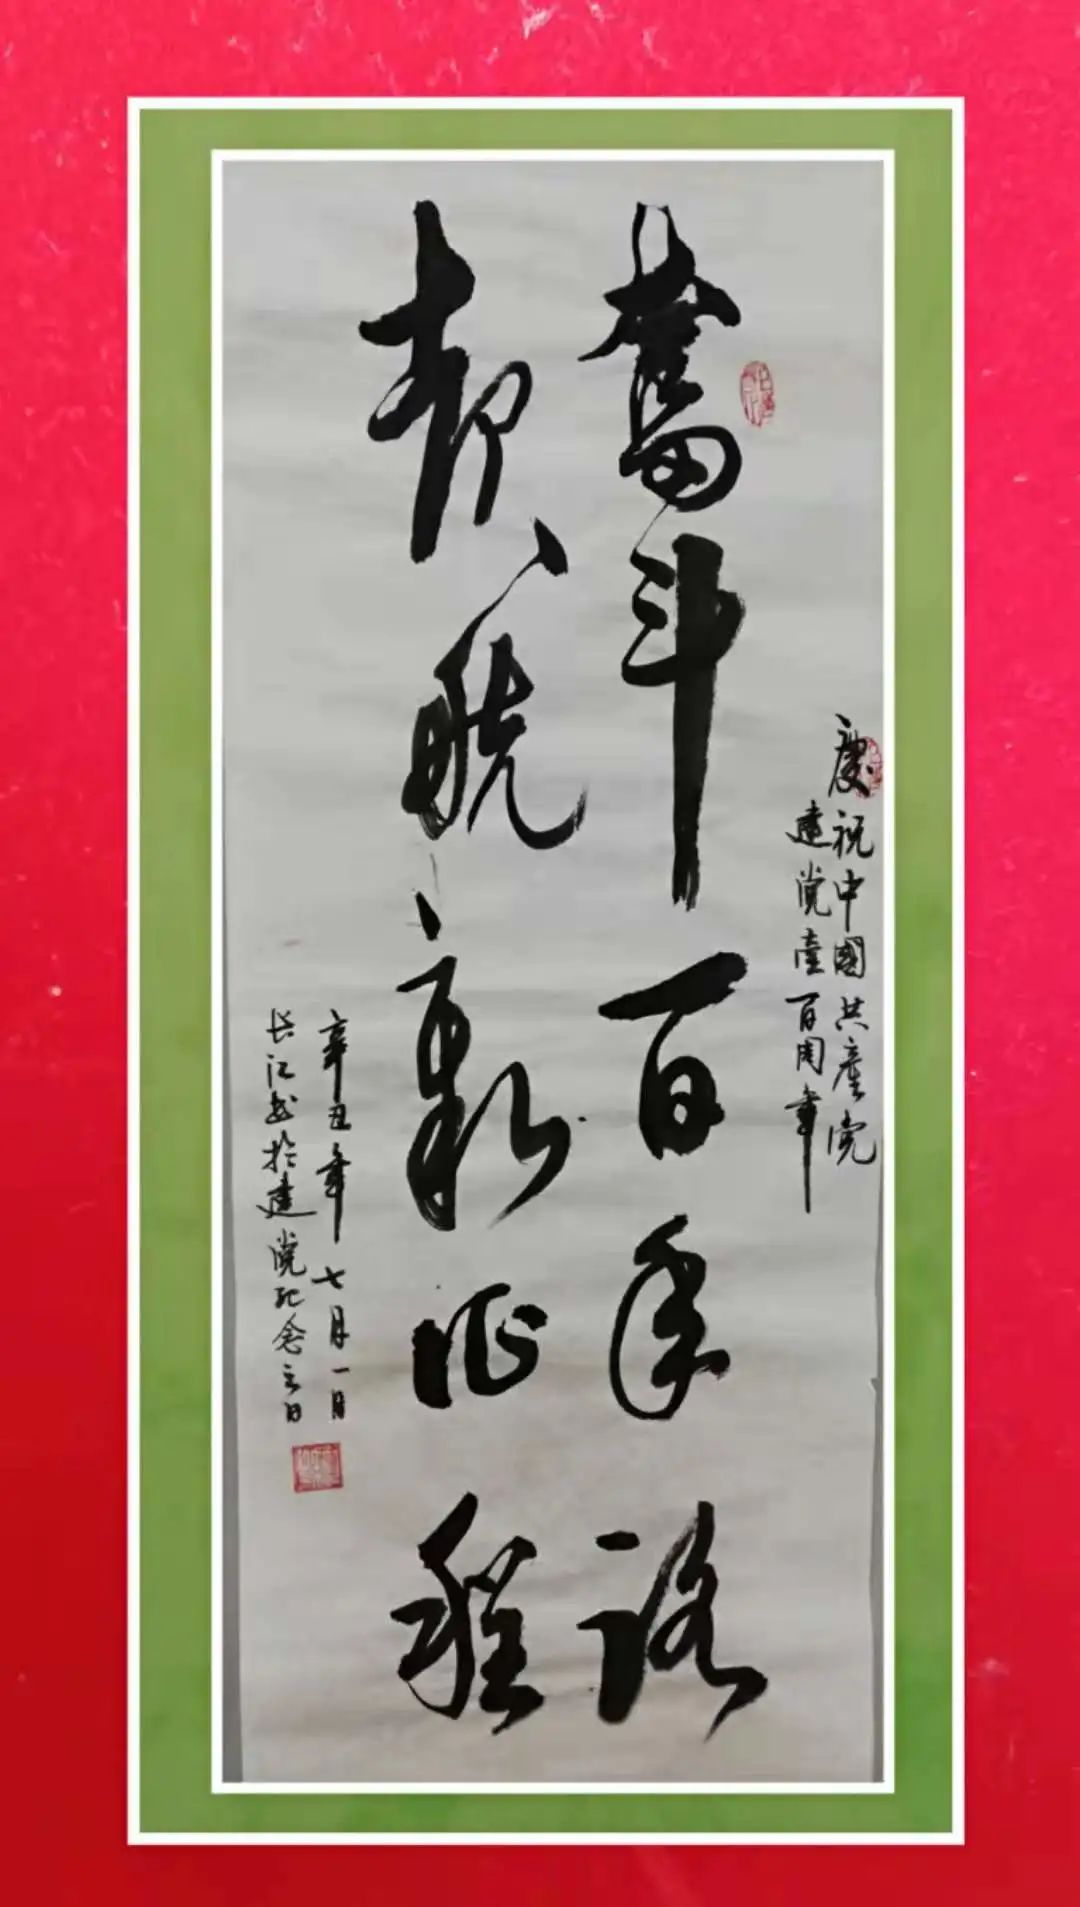 慶祝中國共產党
建党壹百周年
奮斗百年路
啟航新征程
辛丑年七月一日
长江书於建党纪念之日